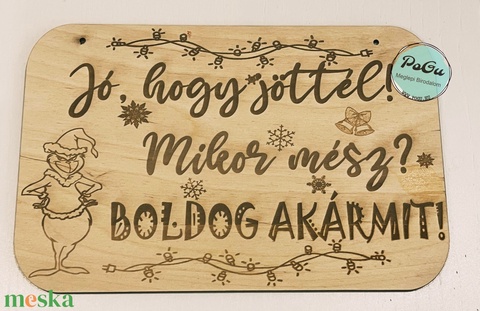 Jó, hogy jöttél!
PoGu
Meglepi Birodalom
Mikor mész?
BOLDOG AKÁRMIT!
meska